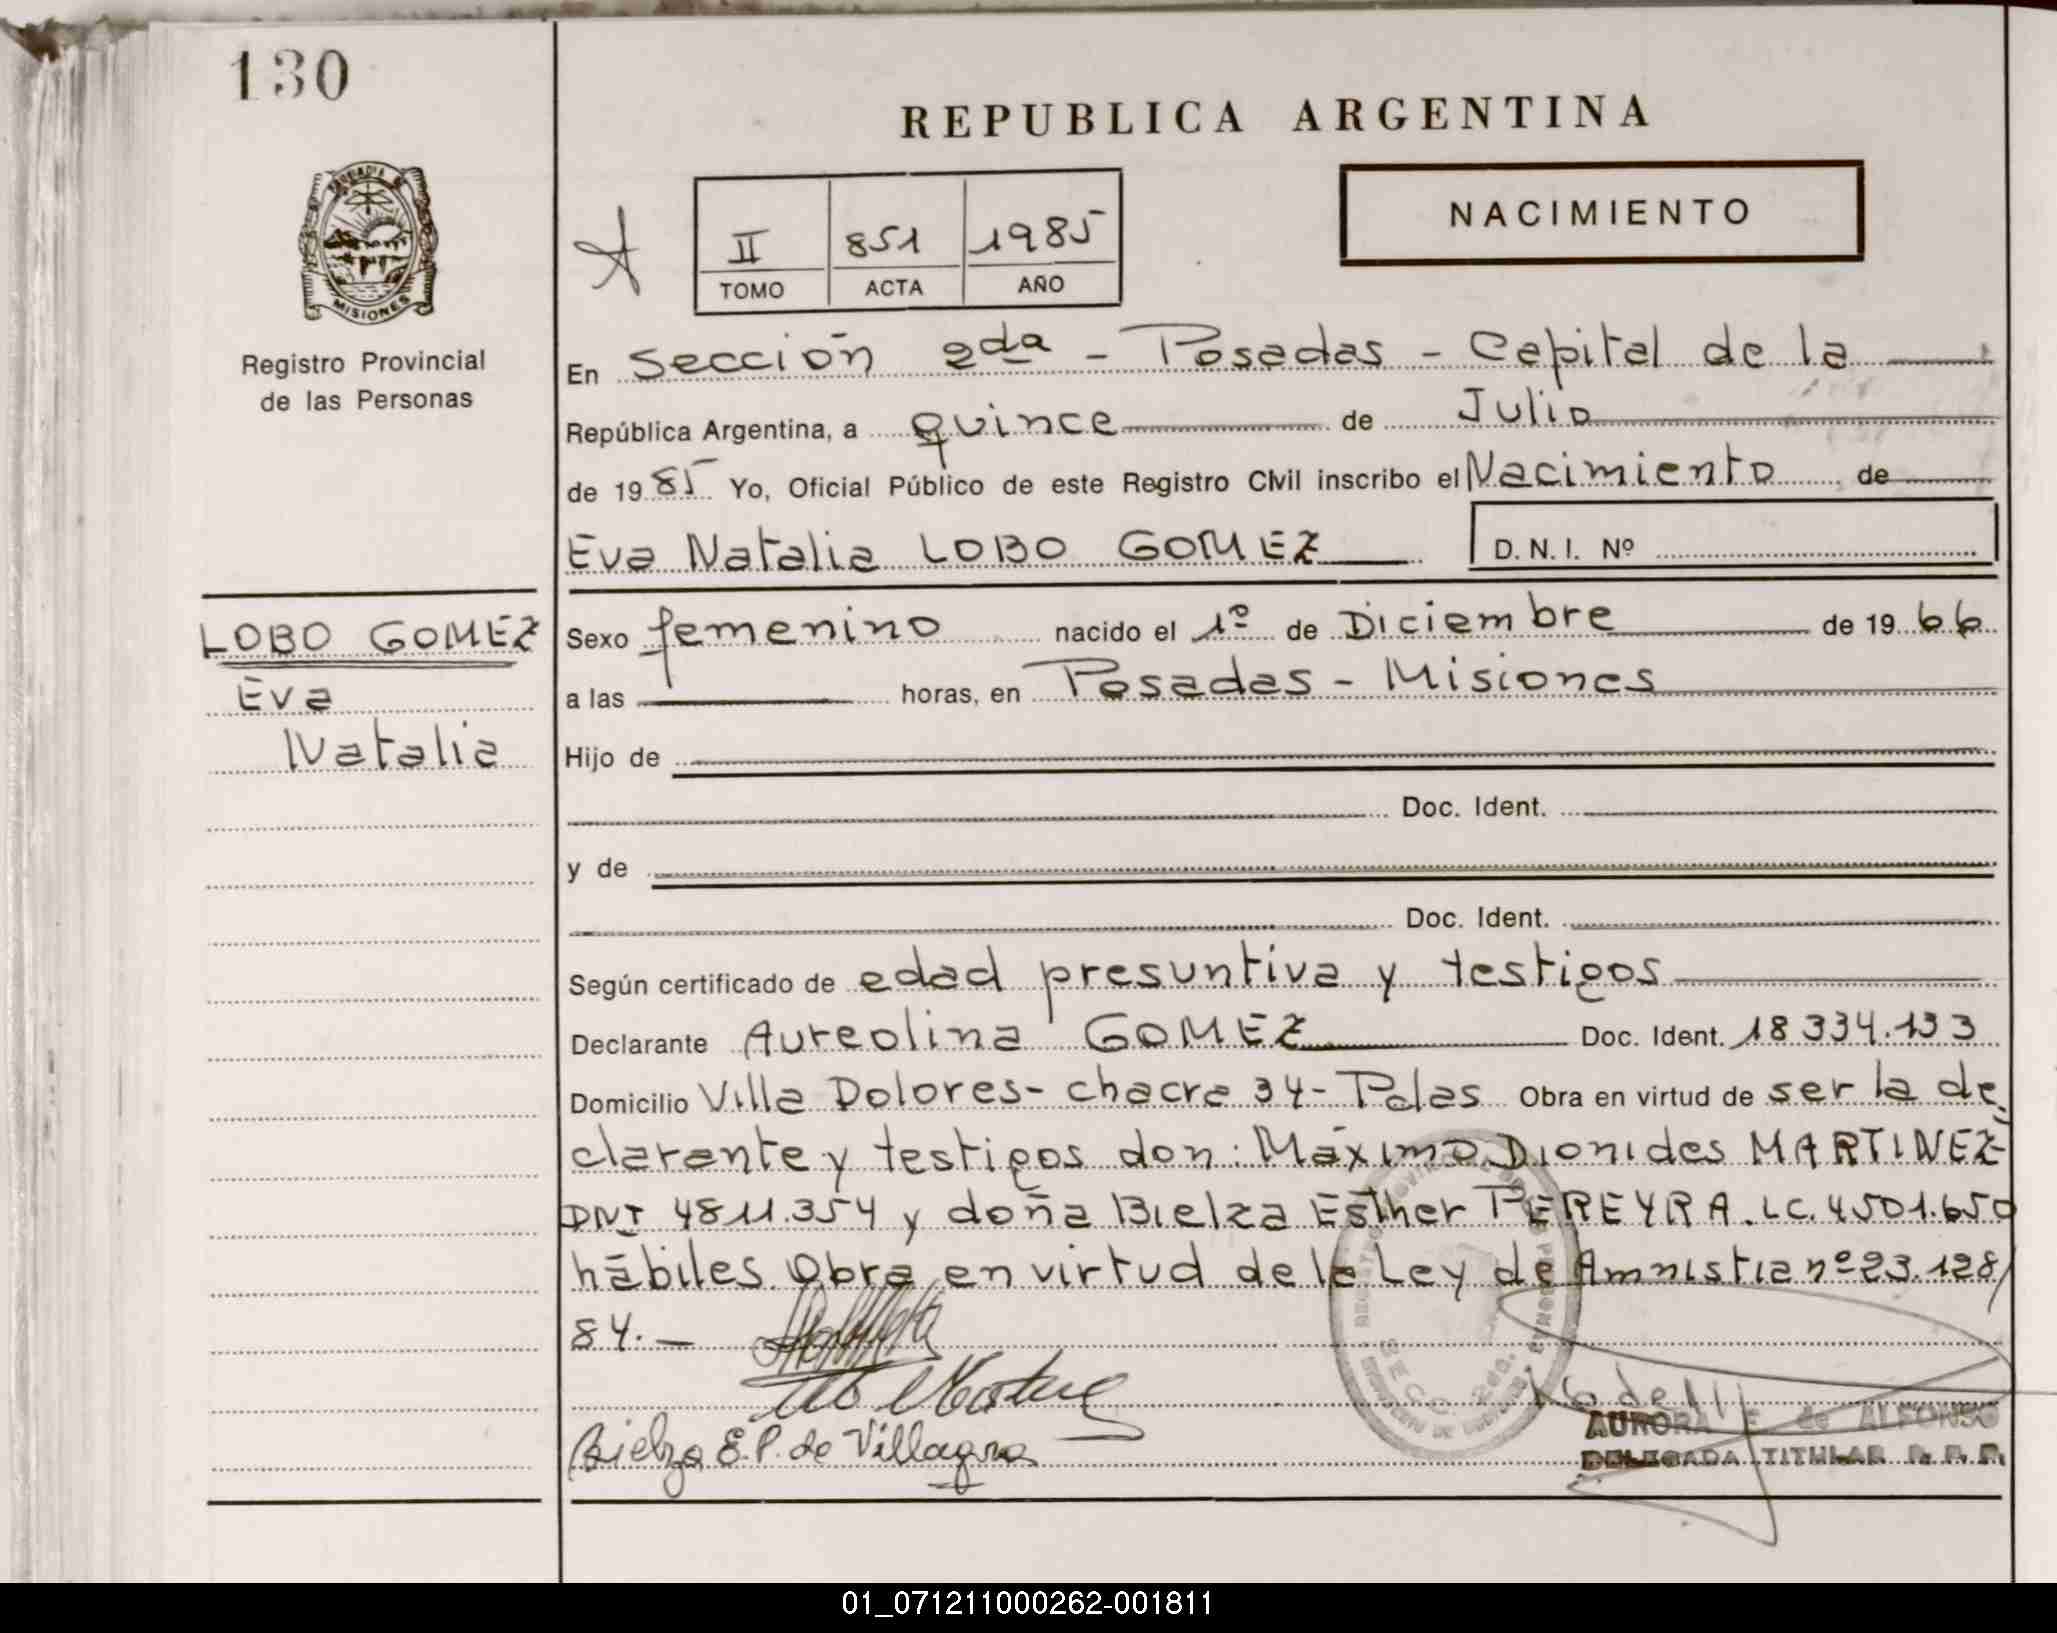 130
REPUBLICA ARGENTINA
NACIMIENTO
II 851 1985
TOMO ACTA AÑO
MISIONES
Registro Provincial
de las Personas
En Sección 2da - Posadas - Capital de la
República Argentina, a quince de Julio
de 1985 Yo, Oficial Público de este Registro Civil inscribo el Nacimiento de
Eva Natalia LOBO GOMEZ D.N.I. Nº
LOBO GOMEZ
Eva
Natalia
Sexo femenino nacido el 1º de Diciembre de 1966
a las horas, en Posadas - Misiones
Hijo de
Doc. Ident.
y de
Doc. Ident.
Según certificado de edad presuntiva y testigos
Declarante Aureolina GOMEZ Doc. Ident. 18334.133
Domicilio Villa Dolores - chacra 34 - Pdas Obra en virtud de ser la de
clarante y testigos don: Máximo Dionides MARTINEZ
DNI 4811.354 y doña Bielza Esther PEREYRA. LC. 4501.650
hábiles. Obra en virtud de la Ley de Amnistia nº 23.128/
84.-
Bielza E.P. de Villagra
SECC. 2da.
AURORA E de ALFONSO
DELEGADA TITULAR R. P. P.
01_071211000262-001811